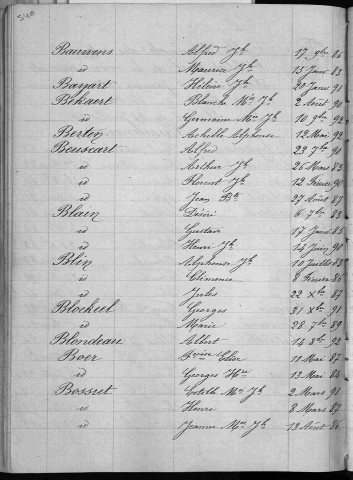 Bauwens Alfred Jh 17 9bre 86
id Maurice Jh 15 Janv 83
Bayart Hélène Jh 20 Janv 91
Békaert Blanche Mie Jh 2 Août 90
id Germaine Mie Jh 10 9bre 92
Berten Achille Alphonse 12 Mai 92
Beuscart Alfred 23 7bre 90
id Arthur Jh 26 Mars 83
id Florent Jh 12 Février 90
id Jean Bte 27 Août 87
Blain Désiré 6 7bre 83
id Gustave 17 Janv 85
id Henri Jh 14 Juin 90
Blin Alphonse Jh 10 Juillet 83
id Clémence 8 Février 86
id Jules 22 Xbre 87
Blockeel Georges 31 Xbre 91
id Marie 28 7bre 89
Blondeau Albert 14 8bre 92
Boer Elise 11 Mai 87
id Georges 13 Mai 84
Bossut Estelle Mie Jh 2 Mars 91
id Henri 8 Mars 87
id Jeanne Mie Jh 13 Août 86